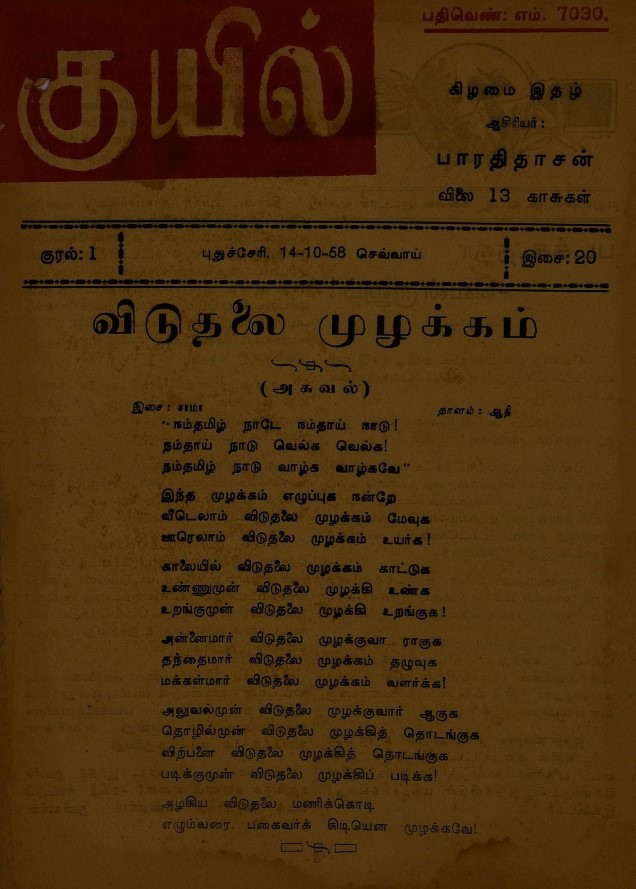 பதிவெண்: எம். 7030.
குயில்
கிழமை இதழ்
ஆசிரியர்:
பாரதிதாசன்
விலை 13 காசுகள்
குரல்: 1
புதுச்சேரி, 14-10-58 செவ்வாய்
இசை: 20
விடுதலை முழக்கம்
(அகவல்)
இசை: சாமா தாளம்: ஆதி
"நம்தமிழ் நாடே நம்தாய் நாடு!
நம்தாய் நாடு வெல்க வெல்க!
நம்தமிழ் நாடு வாழ்க வாழ்கவே"
இந்த முழக்கம் எழுப்புக நன்றே
வீடெலாம் விடுதலை முழக்கம் மேவுக
ஊரெலாம் விடுதலை முழக்கம் உயர்க!
காலையில் விடுதலை முழக்கம் காட்டுக
உண்ணுமுன் விடுதலை முழக்கி உண்க
உறங்குமுன் விடுதலை முழக்கி உறங்குக!
அன்னைமார் விடுதலை முழக்குவா ராகுக
தந்தைமார் விடுதலை முழக்கம் தழுவுக
மக்கள்மார் விடுதலை முழக்கம் வளர்க்க!
அலுவல்முன் விடுதலை முழக்குவார் ஆகுக
தொழில்முன் விடுதலை முழக்கித் தொடங்குக
விற்பனை விடுதலை முழக்கித் தொடங்குக
படிக்குமுன் விடுதலை முழக்கிப் படிக்க!
அழகிய விடுதலை மணிக்கொடி
எழும்வரை பகைவர்க் கிடியென முழக்கவே!